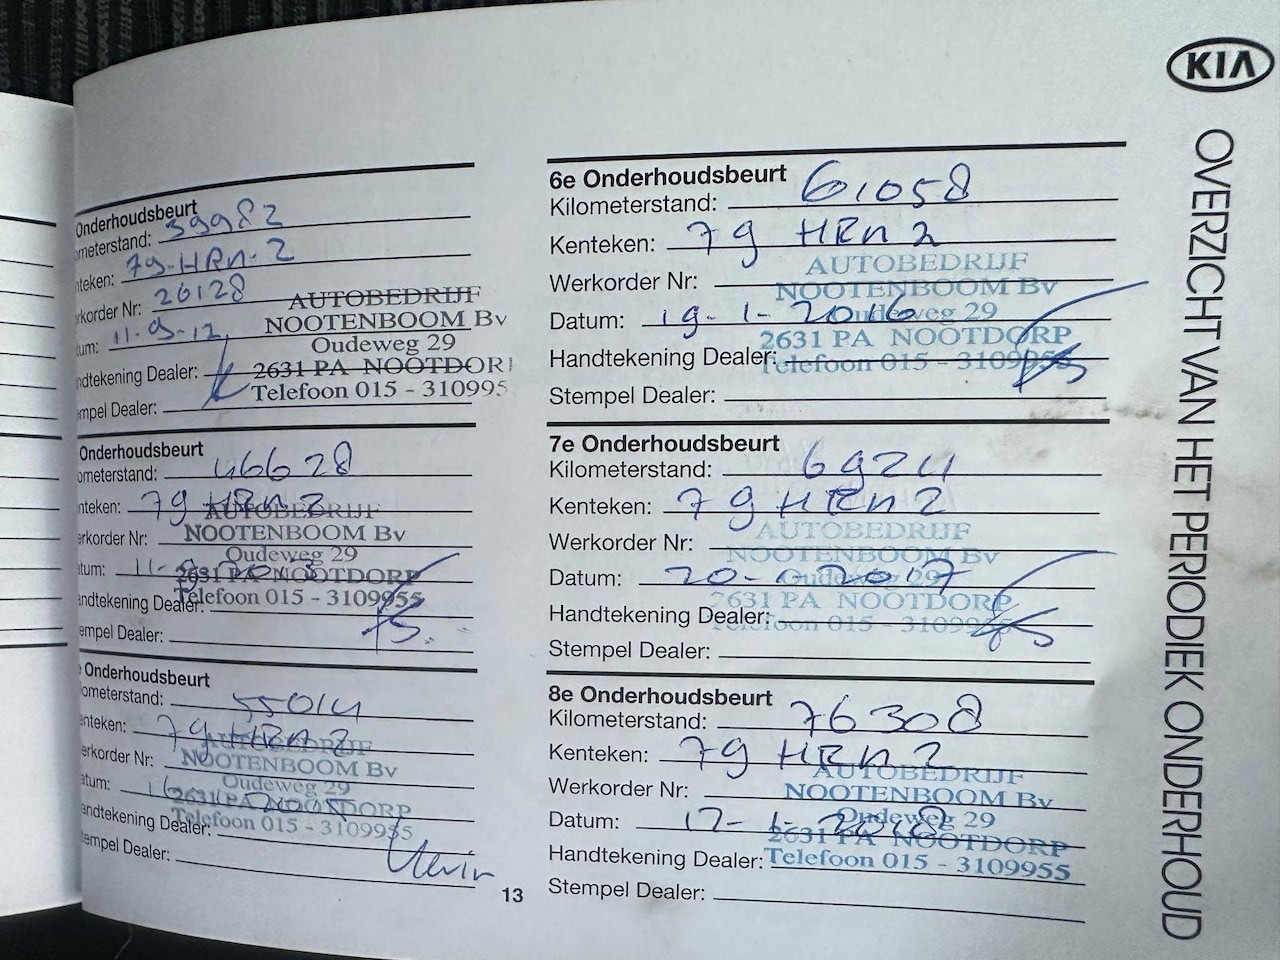 KIA
OVERZICHT VAN HET PERIODIEK ONDERHOUD
Onderhoudsbeurt
ometerstand: 39982
nteken: 79-HRN-2
rkorder Nr: 20128
um: 11-9-12
ndtekening Dealer:
mpel Dealer:
AUTOBEDRIJF
NOOTENBOOM Bv
Oudeweg 29
2631 PA NOOTDOR
Telefoon 015 - 310995
Onderhoudsbeurt
ometerstand: 46628
nteken: 79 HRN 2
erkorder Nr:
tum: 11-
andtekening Dealer:
empel Dealer:
AUTOBEDRIJF
NOOTENBOOM Bv
Oudeweg 29
2631 PA NOOTDORP
Telefoon 015 - 3109955
Onderhoudsbeurt
ometerstand: 55014
enteken: 79 HRN 2
erkorder Nr:
atum:
andtekening Dealer:
empel Dealer:
AUTOBEDRIJF
NOOTENBOOM Bv
Oudeweg 29
2631 PA NOOTDORP
Telefoon 015 - 3109955
13
6e Onderhoudsbeurt
Kilometerstand: 61058
Kenteken: 79 HRN 2
Werkorder Nr:
Datum: 19-1-2016
Handtekening Dealer:
Stempel Dealer:
AUTOBEDRIJF
NOOTENBOOM Bv
Oudeweg 29
2631 PA NOOTDORP
Telefoon 015 - 3109955
7e Onderhoudsbeurt
Kilometerstand: 69211
Kenteken: 79 HRN 2
Werkorder Nr:
Datum: 20-1-2017
Handtekening Dealer:
Stempel Dealer:
AUTOBEDRIJF
NOOTENBOOM Bv
Oudeweg 29
2631 PA NOOTDORP
Telefoon 015 - 3109955
8e Onderhoudsbeurt
Kilometerstand: 76308
Kenteken: 79 HRN 2
Werkorder Nr:
Datum: 12-1-2018
Handtekening Dealer:
Stempel Dealer:
AUTOBEDRIJF
NOOTENBOOM Bv
Oudeweg 29
2631 PA NOOTDORP
Telefoon 015 - 3109955